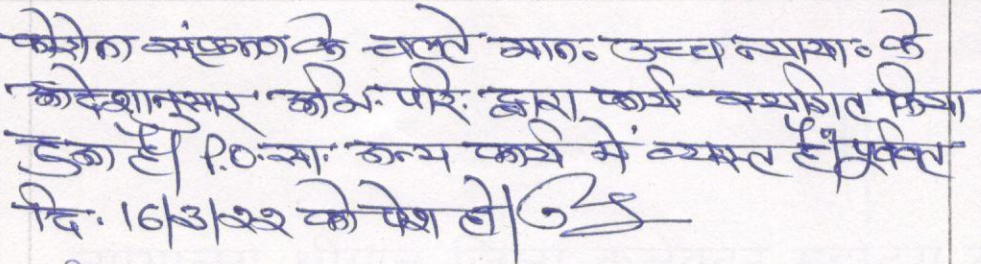 कोरोना संक्रमण के चलते मान० उच्च न्याया० के
आदेशानुसार अभि. परि. द्वारा कार्य स्थगित किया
हुआ है। P.O. सा. अन्य कार्य में व्यस्त हैं। पूर्ववत
दि. 16/3/22 को पेश हो।